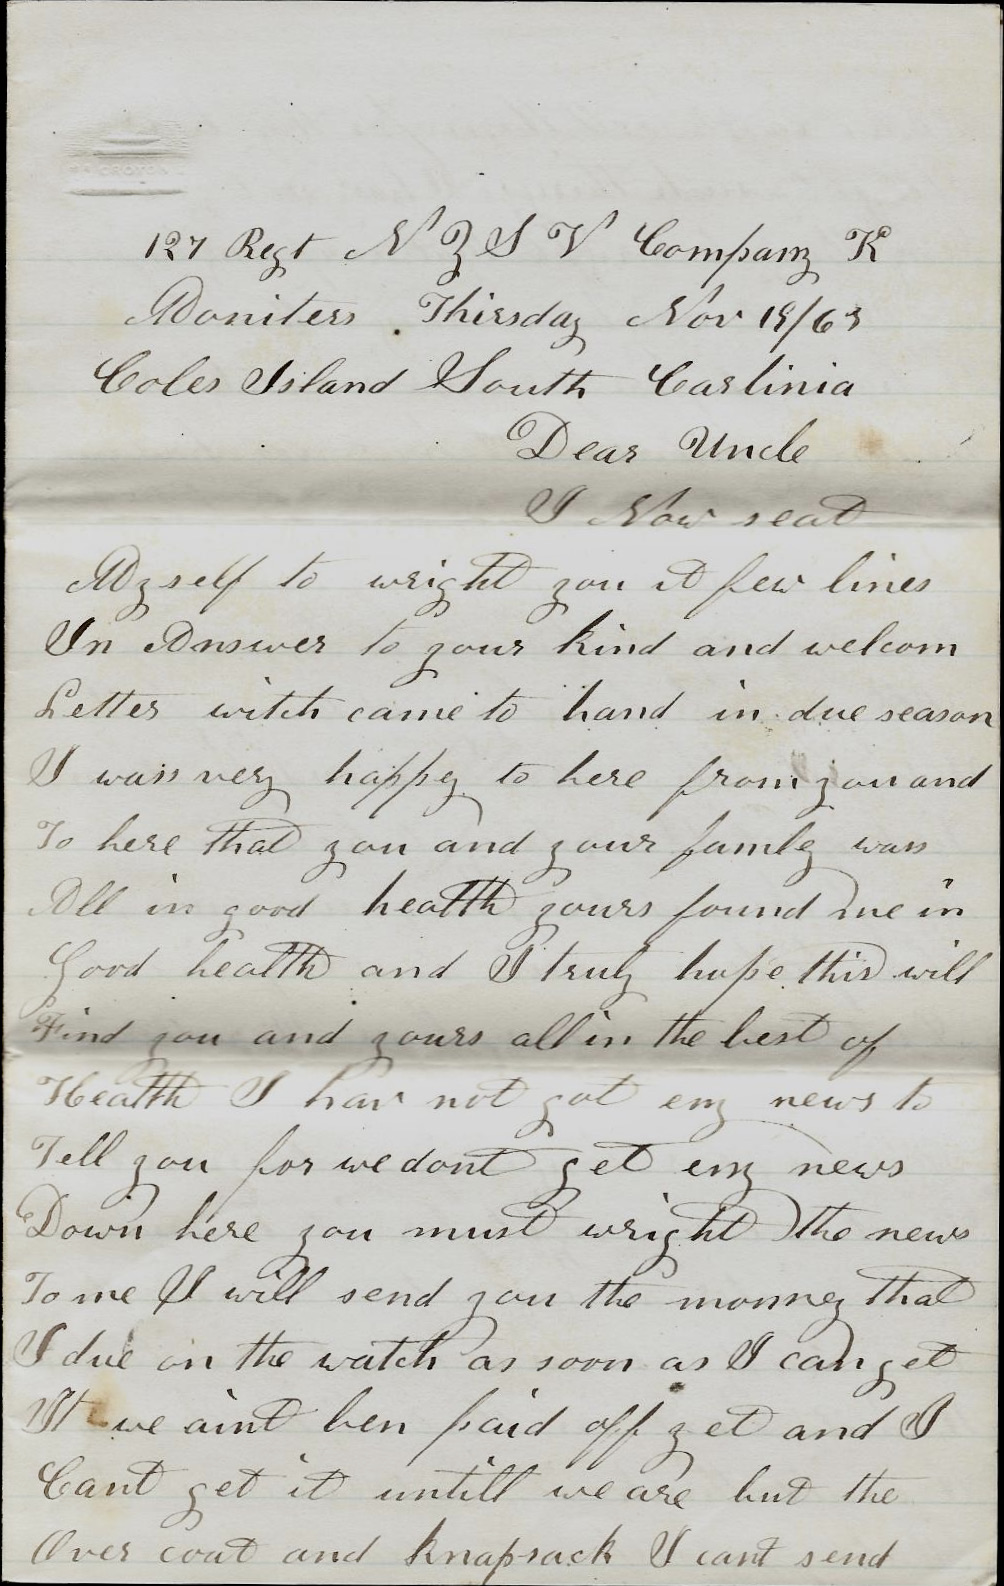 127 Regt N Y S V Company K
Moniters Thirsday Nov 19/63
Coles Island South Carlinia
Dear Uncle
I Now seat
Myself to wright you a few lines
In Answer to your kind and welcom
Letter witch came to hand in due season
I wass very happy to here from you and
To here that you and your famly wass
All in good health yours found me in
Good health and I truly hope this will
Find you and yours all in the best of
Health I hav not got eny news to
Tell you for we dont get eny news
Down here you must wright the news
To me I will send you the monney that
I due on the watch as soon as I can get
It we aint ben paid off yet and I
Cant get it untill we are but the
Over coat and knapsack I cant send